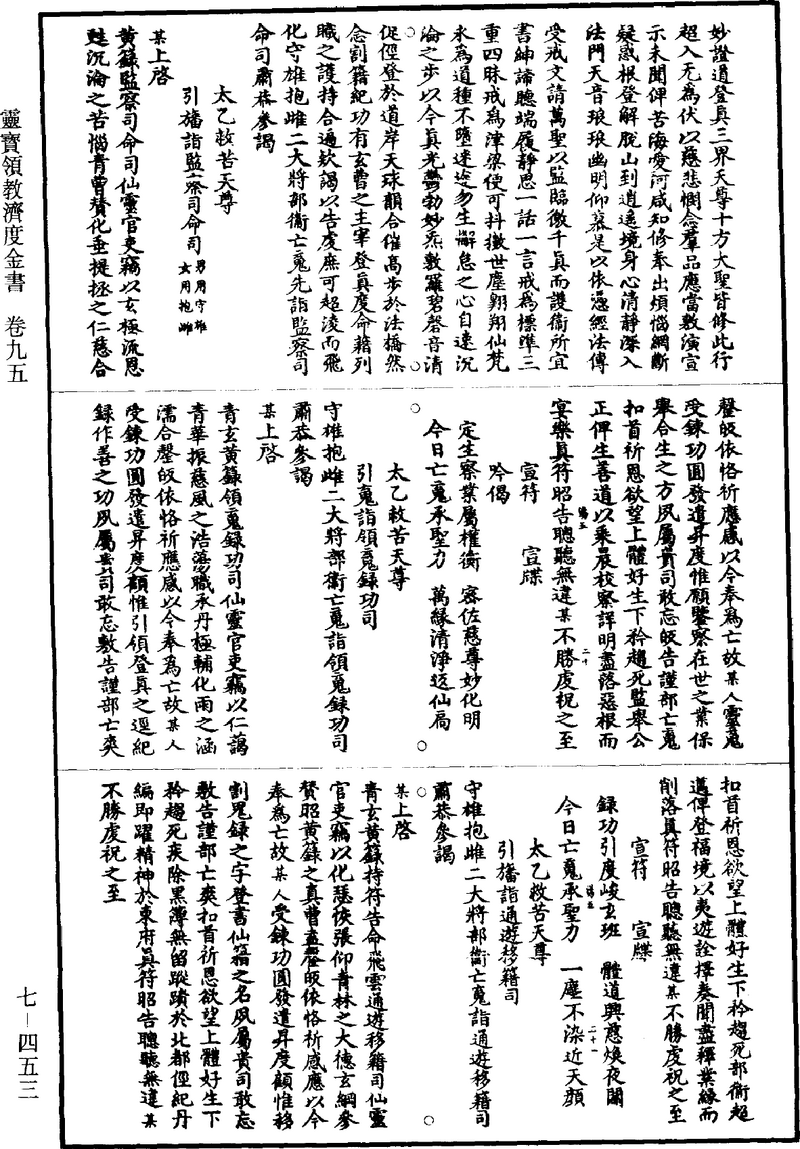 靈寶領教濟度金書　卷九五
七－四五三
妙證道登真三界天尊十方大聖皆修此行
超入无為伏以慈悲憫念羣品應當敷演宣
示未聞俾苦海愛河咸知修奉出煩惱網斷
疑惑根登解脫山到逍遙境身心清靜深入
法門天音琅琅幽明仰慕是以依憑經法傳
受戒文請萬聖以監臨徹千真而護衞所宜
書紳諦聽端履靜思一話一言戒為標準三
重四昧戒為津梁便可抖擻世塵翱翔仙梵
永為道種不墮迷途勿生懈怠之心自速沉
淪之步以今真光鬱勃妙炁敷羅碧磬音清
○
促俓登於道岸天球韻合催高步於法橋然
念割籍紀功有玄曹之主宰登真度命藉列
職之護持合遍欵謁以告虔庶可超淩而飛
化守雄抱雌二大將部衞亡䰟先詣監察司
命司肅恭參謁
太乙救苦天尊
引旛詣監察司命司男用守雄女用抱雌
某上啓
黃籙監察司命司仙靈官吏竊以玄極流恩
甦沉淪之苦惱青曹贊化垂提拯之仁慈合
罄皈依恪祈應感以今奉為亡故某人靈䰟
受鍊功圓發遣昇度惟願鑒察在世之業保
舉合生之方夙屬貴司敢忘皈告謹部亡䰟
扣首祈恩欲望上體好生下矜趨死監舉公
正俾生善道以乘晨校察詳明盡落惡根而
宴樂真符昭告聰聽無違某不勝虔祝之至
宣符　宣牒
吟偈
定生察業屬權衡　密佐慈尊妙化明
今日亡䰟承聖力　萬緣清淨返仙扃
○
太乙救苦天尊
引䰟詣領䰟錄功司
守雄抱雌二大將部衞亡䰟詣領䰟錄功司
肅恭參謁
某上啓
青玄黃籙領䰟錄功司仙靈官吏竊以仁藹
青華振慈風之浩蕩職承丹極輔化雨之涵
濡合罄皈依恪祈應感以今奉為亡故某人
受鍊功圓發遣昇度願惟引領登真之逕紀
錄作善之功夙屬貴司敢忘敷告謹部亡爽
扣首祈恩欲望上體好生下矜趨死部衞超
邁俾登福境以夷遊詮擇奏聞盡釋業緣而
削落真符昭告聰聽無違某不勝虔祝之至
宣符　宣牒
錄功引度峻玄班　體道興慈煥夜關
今日亡䰟承聖力　一塵不染近天顔
太乙救苦天尊
引旛詣通遊移籍司
守雄抱雌二大將部衞亡䰟詣通遊移籍司
肅恭參謁
○
某上啓
青玄黃籙持符告命飛雲通遊移籍司仙靈
官吏竊以化瑟恢張仰青林之大德玄綱參
贊昭黃籙之真曹盍罄皈依恪祈感應以今
奉為亡故某人受鍊功圓發遣昇度願惟移
割鬼錄之字登書仙籍之名夙屬貴司敢忘
敷告謹部亡爽扣首祈恩欲望上體好生下
矜趨死疾除黑簿無留蹤蹟於北都俓紀丹
編即躍精神於東府真符昭告聰聽無違某
不勝虔祝之至